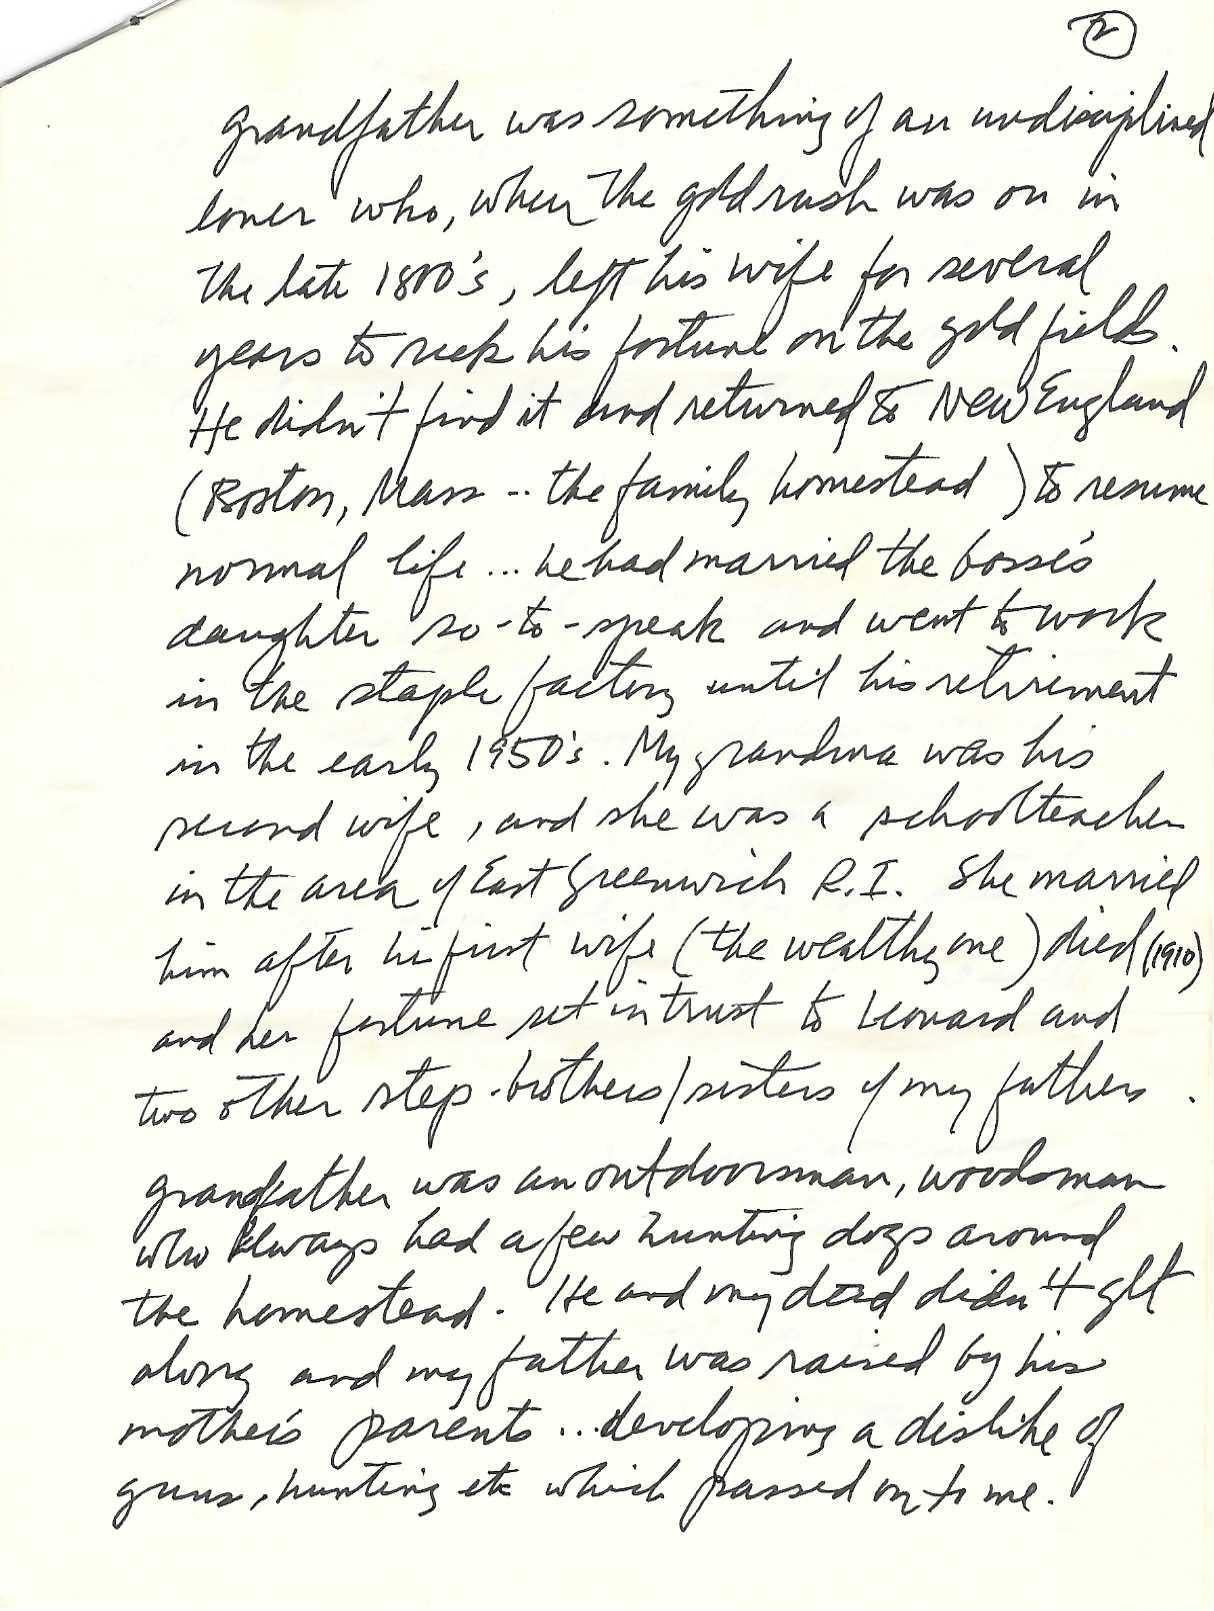 2
grandfather was something of an undisciplined
loner who, when the gold rush was on in
the late 1800's, left his wife for several
years to seek his fortune on the gold fields.
He didn't find it and returned to New England
(Boston, Mass -- the family homestead) to resume
normal life ... he had married the bosse's
daughter so-to-speak and went to work
in the staple factory until his retirement
in the early 1950's. My grandma was his
second wife, and she was a schoolteacher
in the area of East Greenwich R.I. She married
him after his first wife (the wealthy one) died (1910)
and her fortune set in trust to Leonard and
two other step-brothers/sisters of my fathers.
grandfather was an outdoorsman, woodsman
who always had a few hunting dogs around
the homestead. He and my dad didn't get
along and my father was raised by his
mother's parents ... developing a dislike of
guns, hunting etc which passed on to me.